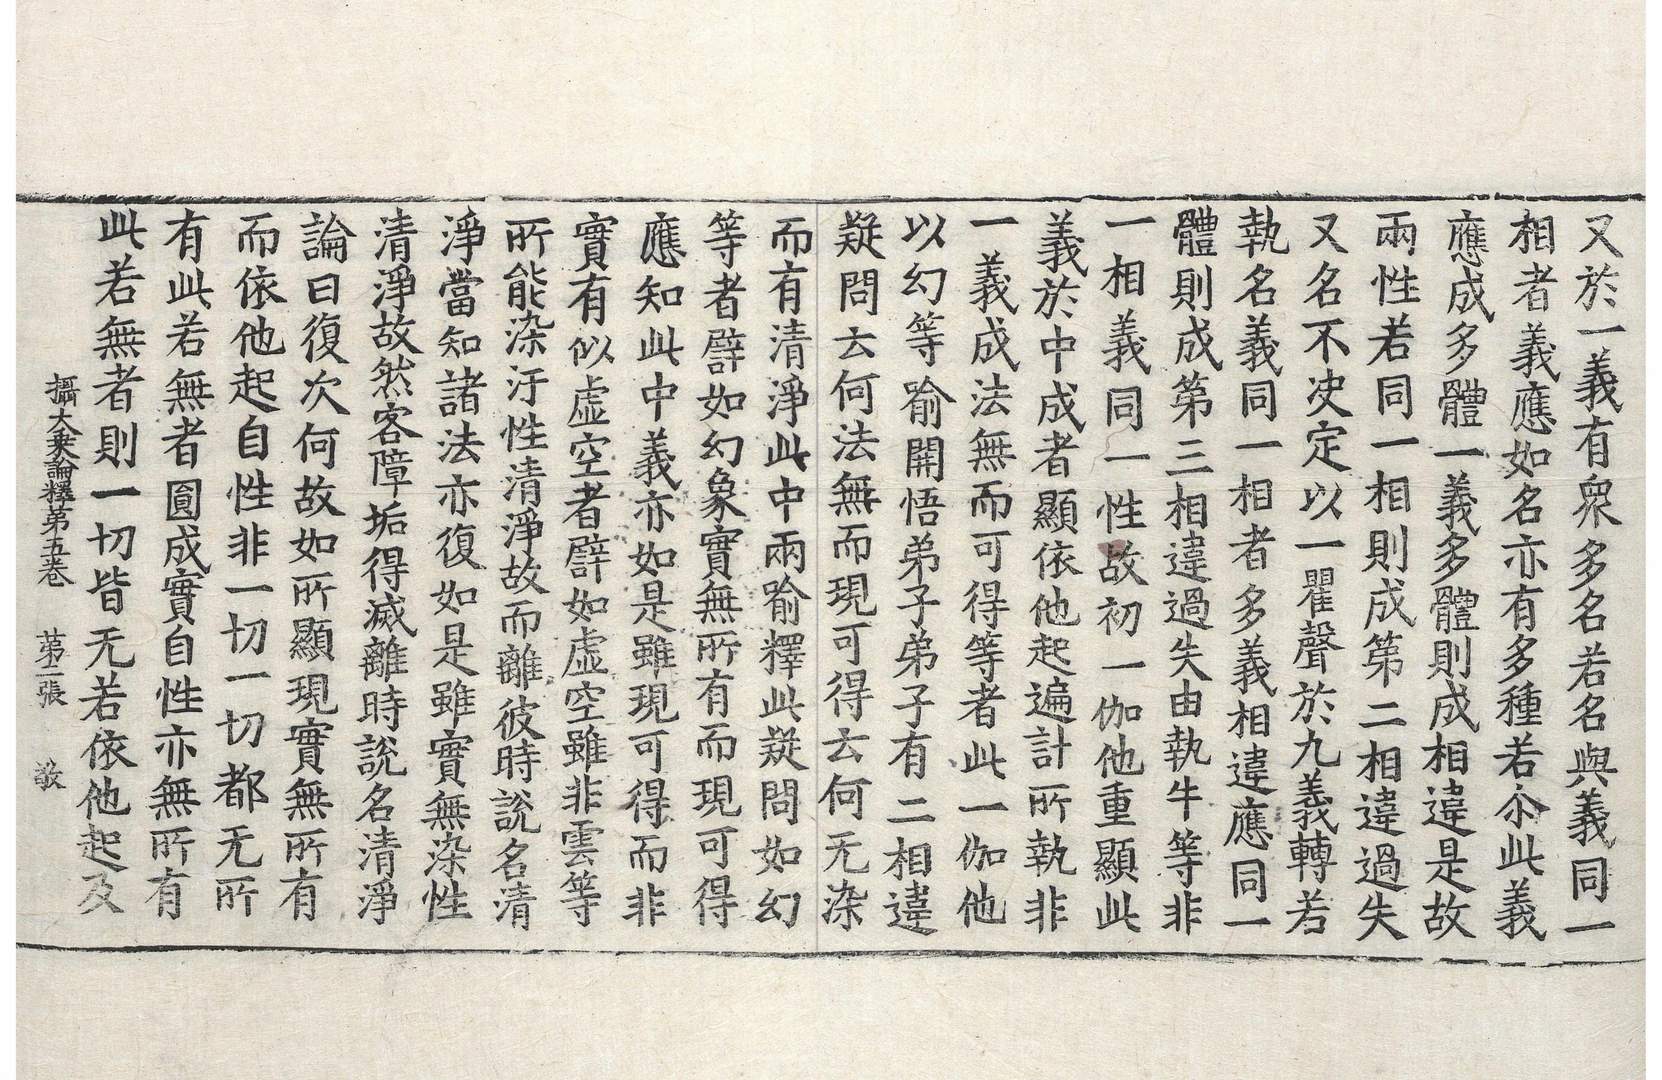 又於一義有衆多名若名與義同一
相者義應如名亦有多種若尒此義
應成多體一義多體則成相違是故
兩性若同一相則成第二相違過失
又名不决定以一瞿聲於九義轉若
執名義同一相者多義相違應同一
體則成第三相違過失由執牛等非
一相義同一性故初一伽他重顯此
義於中成者顯依他起遍計所執非
一義成法無而可得等者此一伽他
以幻等喻開悟弟子弟子有二相違
疑問云何法無而現可得云何无染
而有清淨此中兩喻釋此疑問如幻
等者譬如幻象實無所有而現可得
應知此中義亦如是雖現可得而非
實有似虛空者譬如虛空雖非雲等
所能染汙性清淨故而離彼時說名清
淨當知諸法亦復如是雖實無染性
清淨故然客障垢得滅離時說名清淨
論曰復次何故如所顯現實無所有
而依他起自性非一切一切都无所
有此若無者圓成實自性亦無所有
此若無者則一切皆无若依他起及
攝大乘論釋第五卷 第十二張 敬